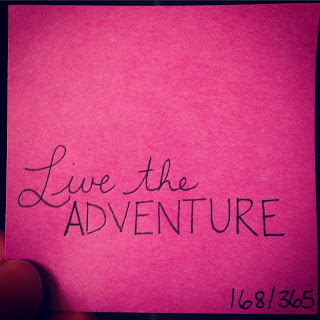 Live the
ADVENTURE
168/365